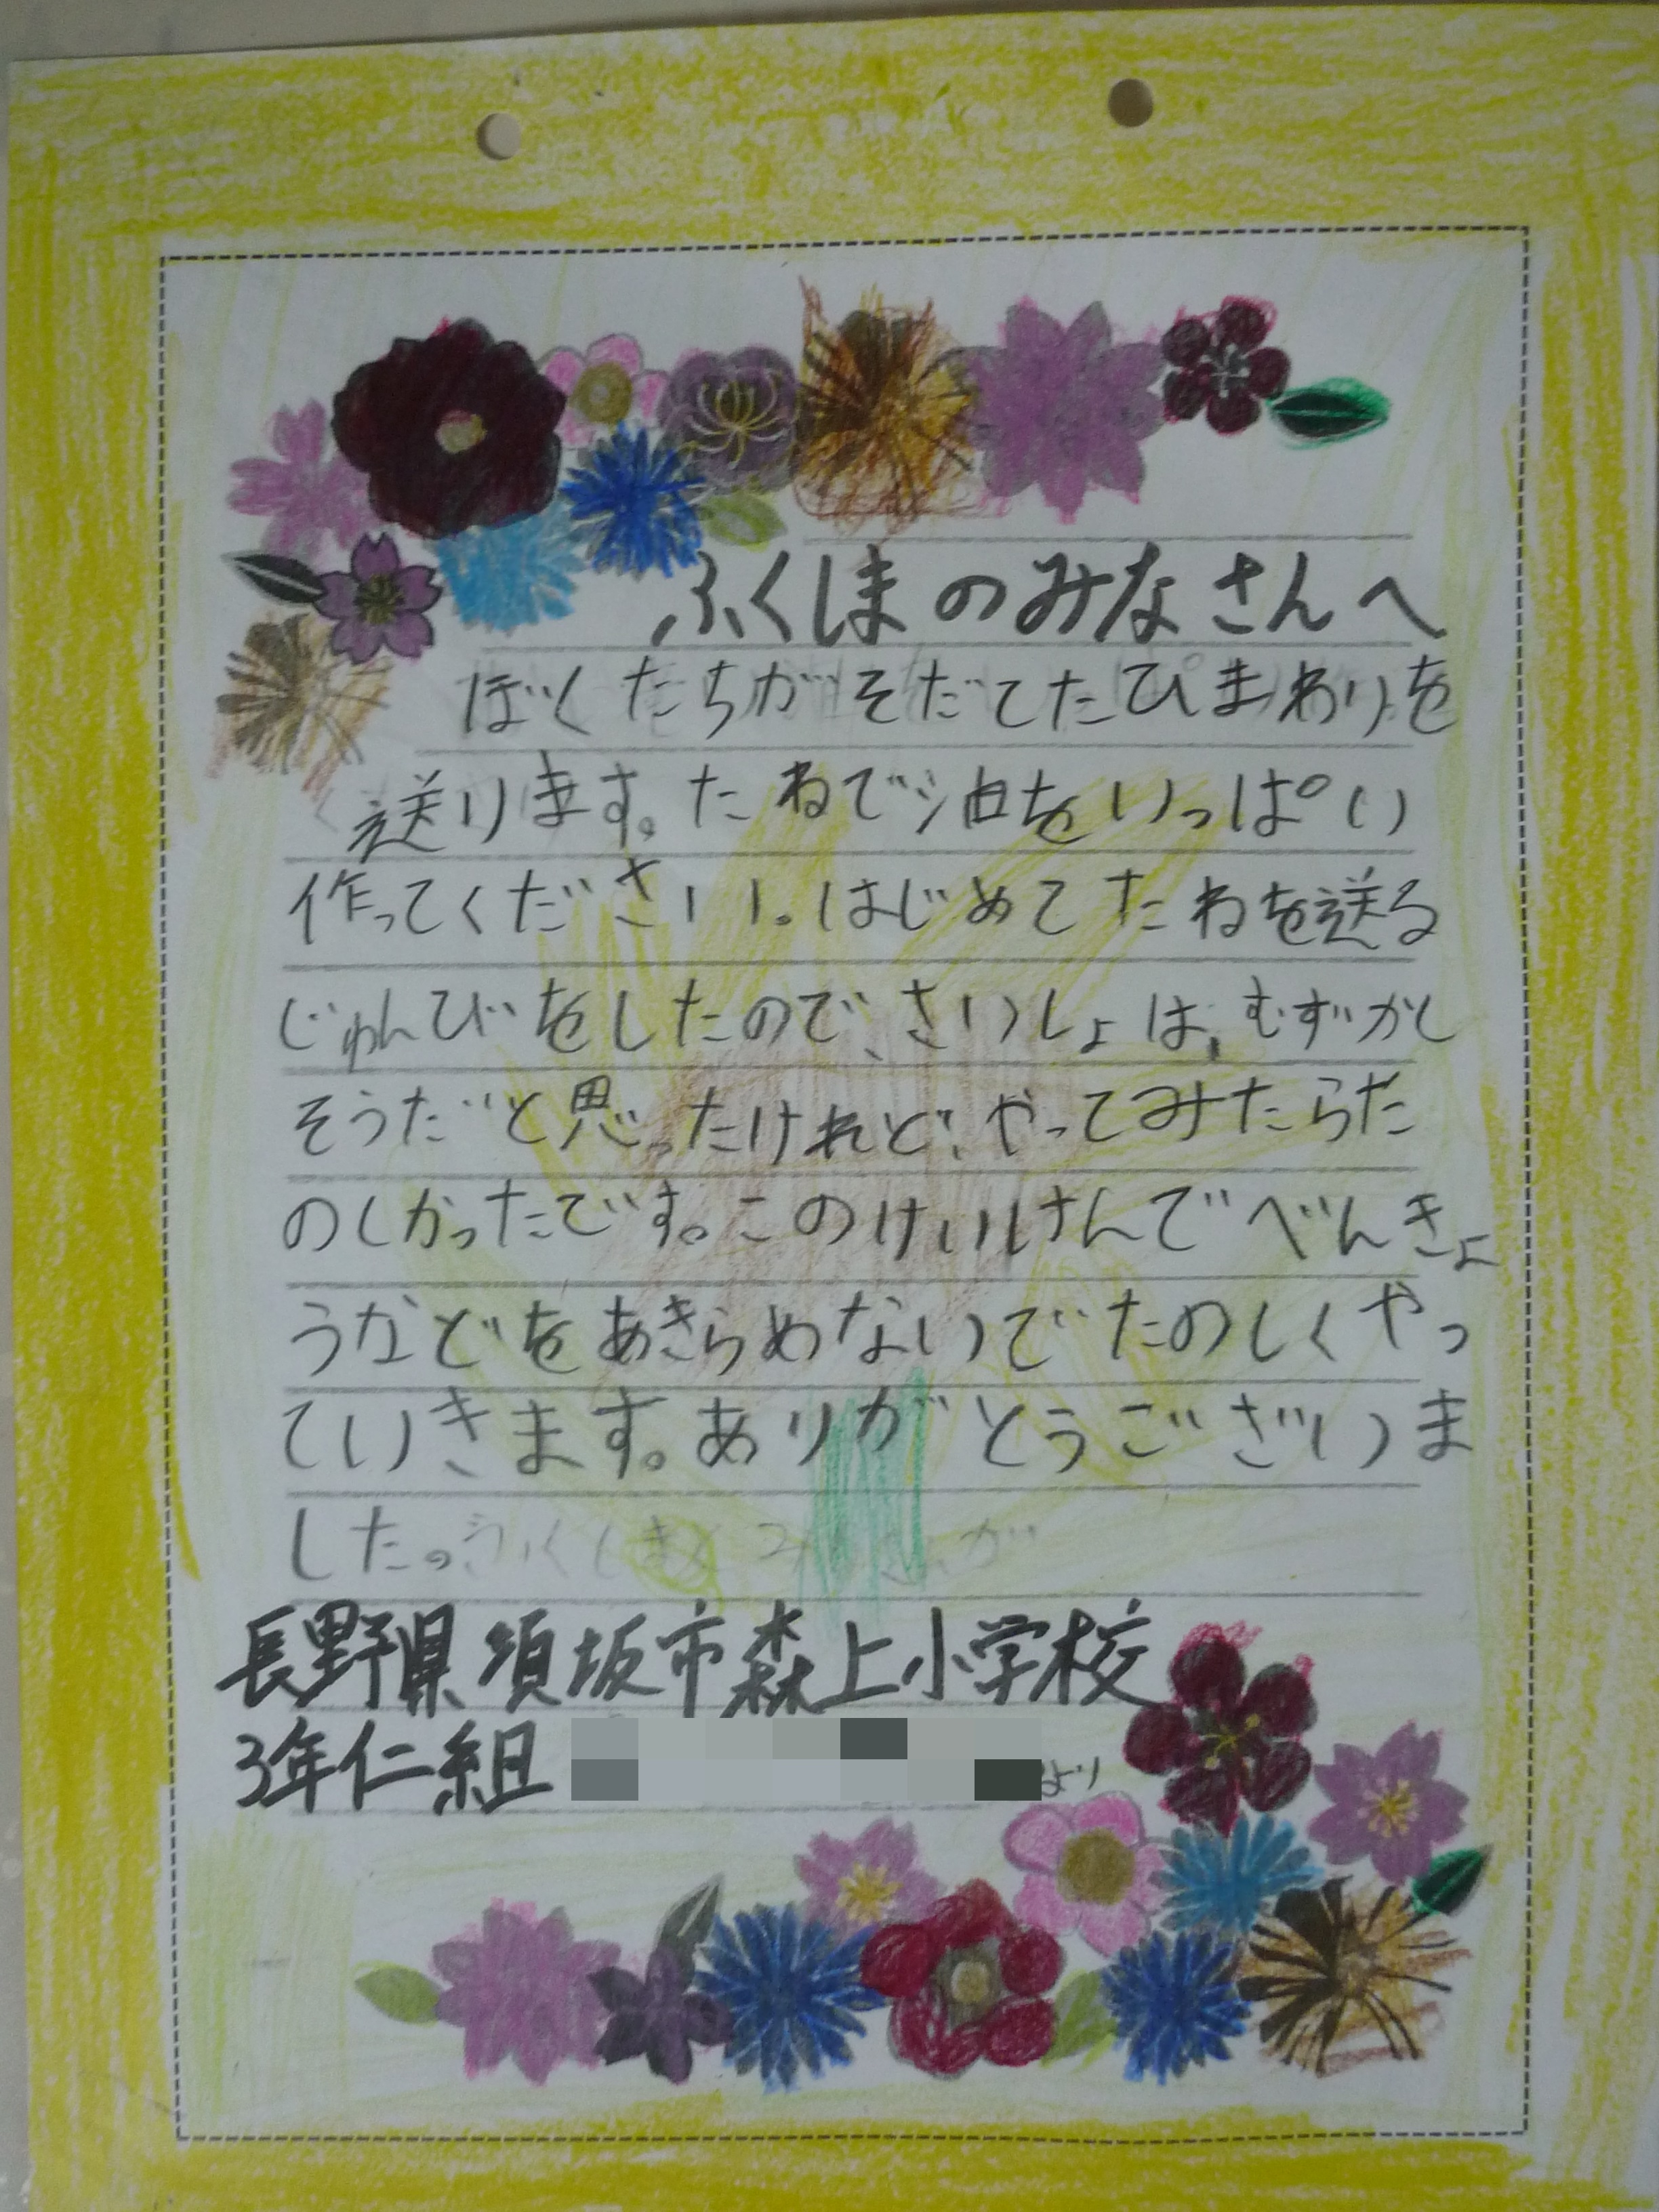 ふくしまのみなさんへ
ぼくたちがそだてたひまわりを
送ります。たねで油をいっぱい
作ってください。はじめてたねを送る
じゅんびをしたので、さいしょは、むずかし
そうだと思ったけれど、やってみたらた
のしかったです。このけいけんでべんきょ
うなどをあきらめないでたのしくやっ
ていきます。ありがとうございま
した。
長野県須坂市森上小学校
3年仁組
より